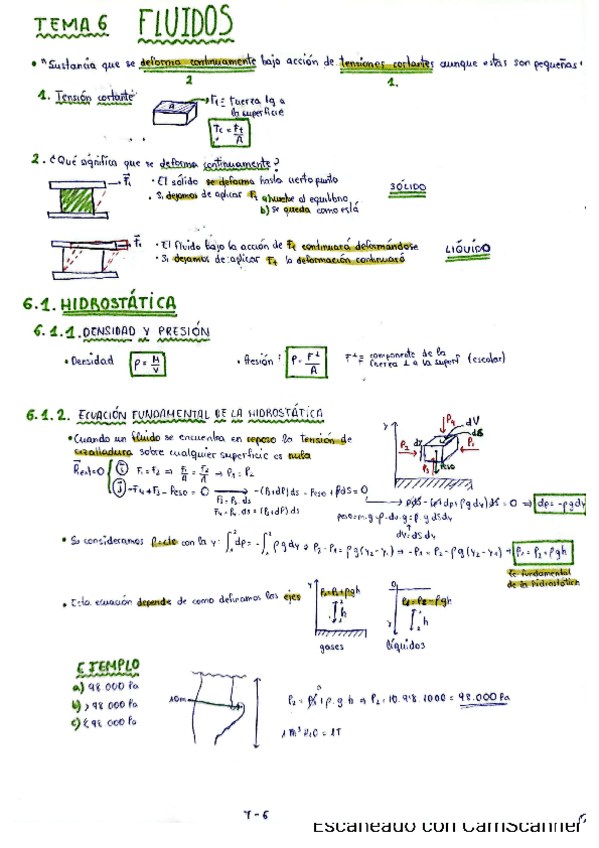 TEMA 6 FLUIDOS
• "Sustancia que se deforma continuamente bajo acción de tensiones cortantes aunque estas son pequeñas"
2 1.
1. Tensión cortante
A
Ft = Fuerza tg a
la superficie
τc = Ft/A
2. ¿Qué significa que se deforma continuamente?
F⃗t
• El sólido se deforma hasta cierto punto
• Si dejamos de aplicar Ft a) vuelve al equilibrio
b) se queda como está
SÓLIDO
F⃗t
• El fluido bajo la acción de Ft continuará deformándose
• Si dejamos de aplicar Ft la deformación continuará
LÍQUIDO
6.1. HIDROSTÁTICA
6.1.1. DENSIDAD Y PRESIÓN
• Densidad ρ = M/V • Presión: P = F⊥/A F⊥ = componente de la
fuerza ⊥ a la superf (escalar)
6.1.2. ECUACIÓN FUNDAMENTAL DE LA HIDROSTÁTICA
• Cuando un fluido se encuentra en reposo la Tensión de
cizalladura sobre cualquier superficie es nula
y P4 dV
ds
P2 dy P1
P3 Peso
Rext=0 { i F1 = F2 ⇒ F1/A = F2/A ⇒ P1 = P2
j -F4 + F3 - Peso = 0 → -(P+dP)ds - Peso + Pds = 0
F3 = P. ds
F4 = (P+dP) ds
dp = -ρgdy
dV = ds dy
• Si consideramos ρ=cte con la y: ∫dp = -∫ρgdy P1 = P2 + ρgh
Ec fundamental
de la hidrostática
• Esta ecuación depende de como definamos los ejes
y P1 = P2 + ρgh
h
gases
P1 = P2 - ρgh
h
líquidos
EJEMPLO
a) 98 000 Pa
b) > 98 000 Pa
c) < 98 000 Pa
10m
P2 = P1 + ρ.g.h ⇒ P2 = 10.9'8.1000 = 98.000 Pa
1 m³ H2O = 1T
T-6
Escaneado con CamScanner